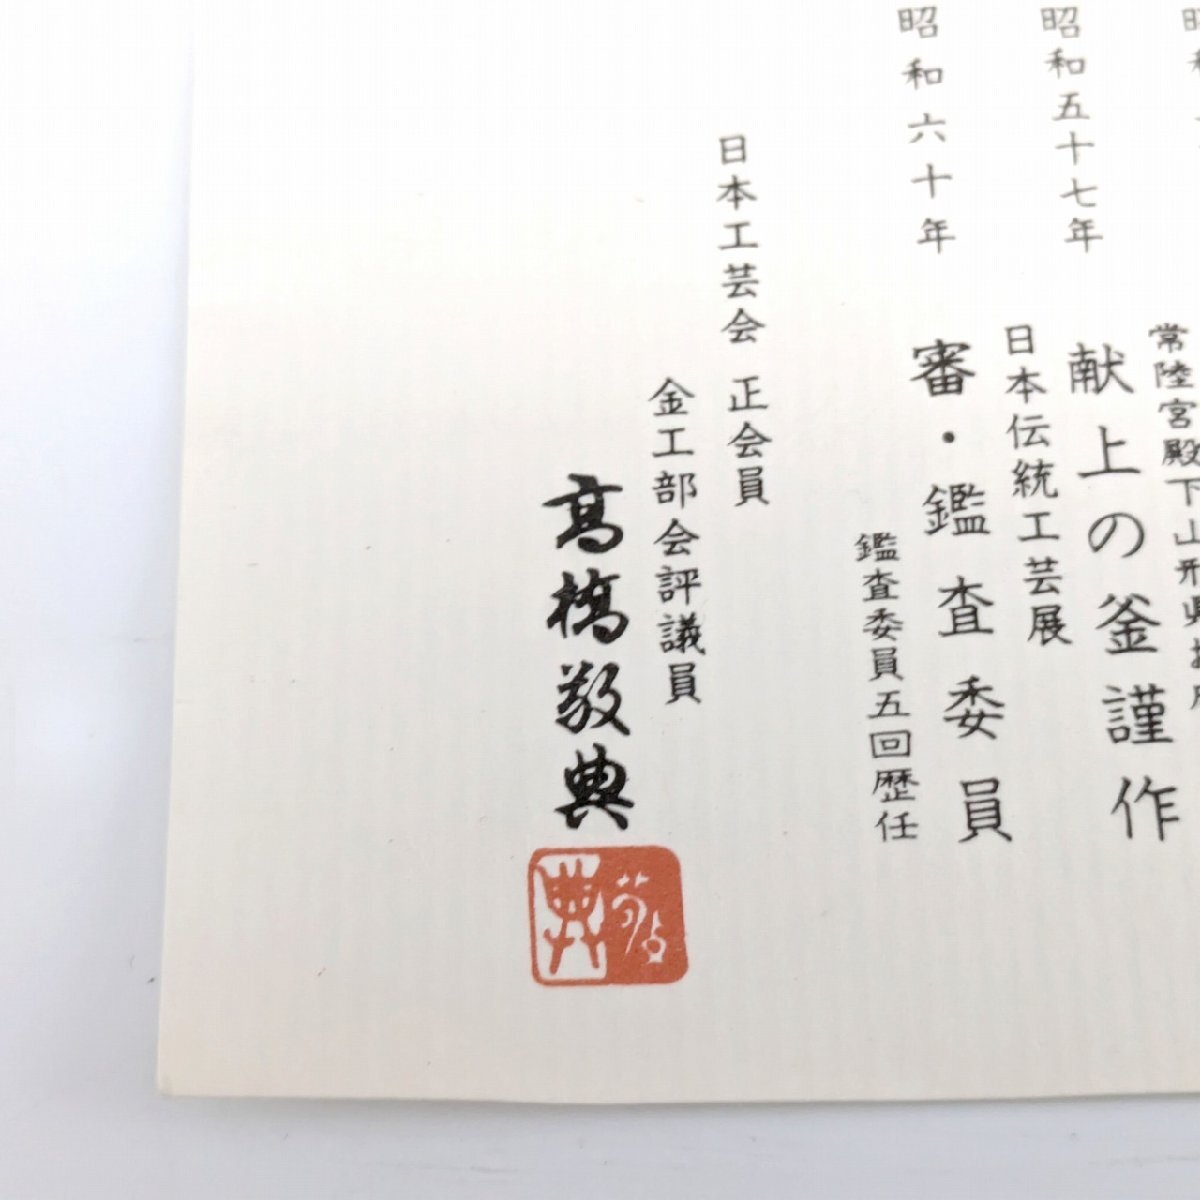 常陸宮殿下山形県
昭和五十七年
献上の釜謹作
日本伝統工芸展
昭和六十年
審・鑑査委員
鑑査委員五回歴任
日本工芸会 正会員
金工部会評議員
高橋敬典
敬典